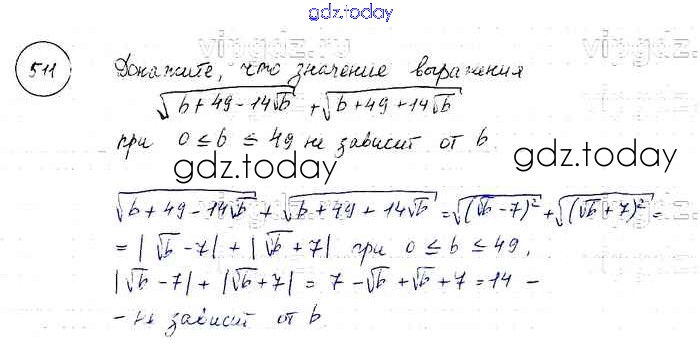 gdz.today
vipgdz.ru
511
Докажите, что значение выражения
√(b+49-14√b) + √(b+49+14√b)
при 0 ≤ b ≤ 49 не зависит от b.
gdz.today
gdz.today
√(b+49-14√b) + √(b+49+14√b) = √((√b-7)²) + √((√b+7)²) =
= |√b-7| + |√b+7| при 0 ≤ b ≤ 49,
|√b-7| + |√b+7| = 7-√b+√b+7 = 14 -
- не зависит от b